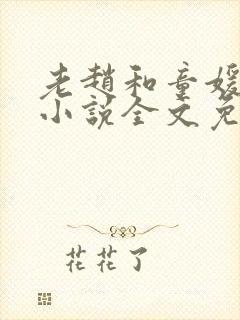 老赵和童媛
小说全文免
花花了